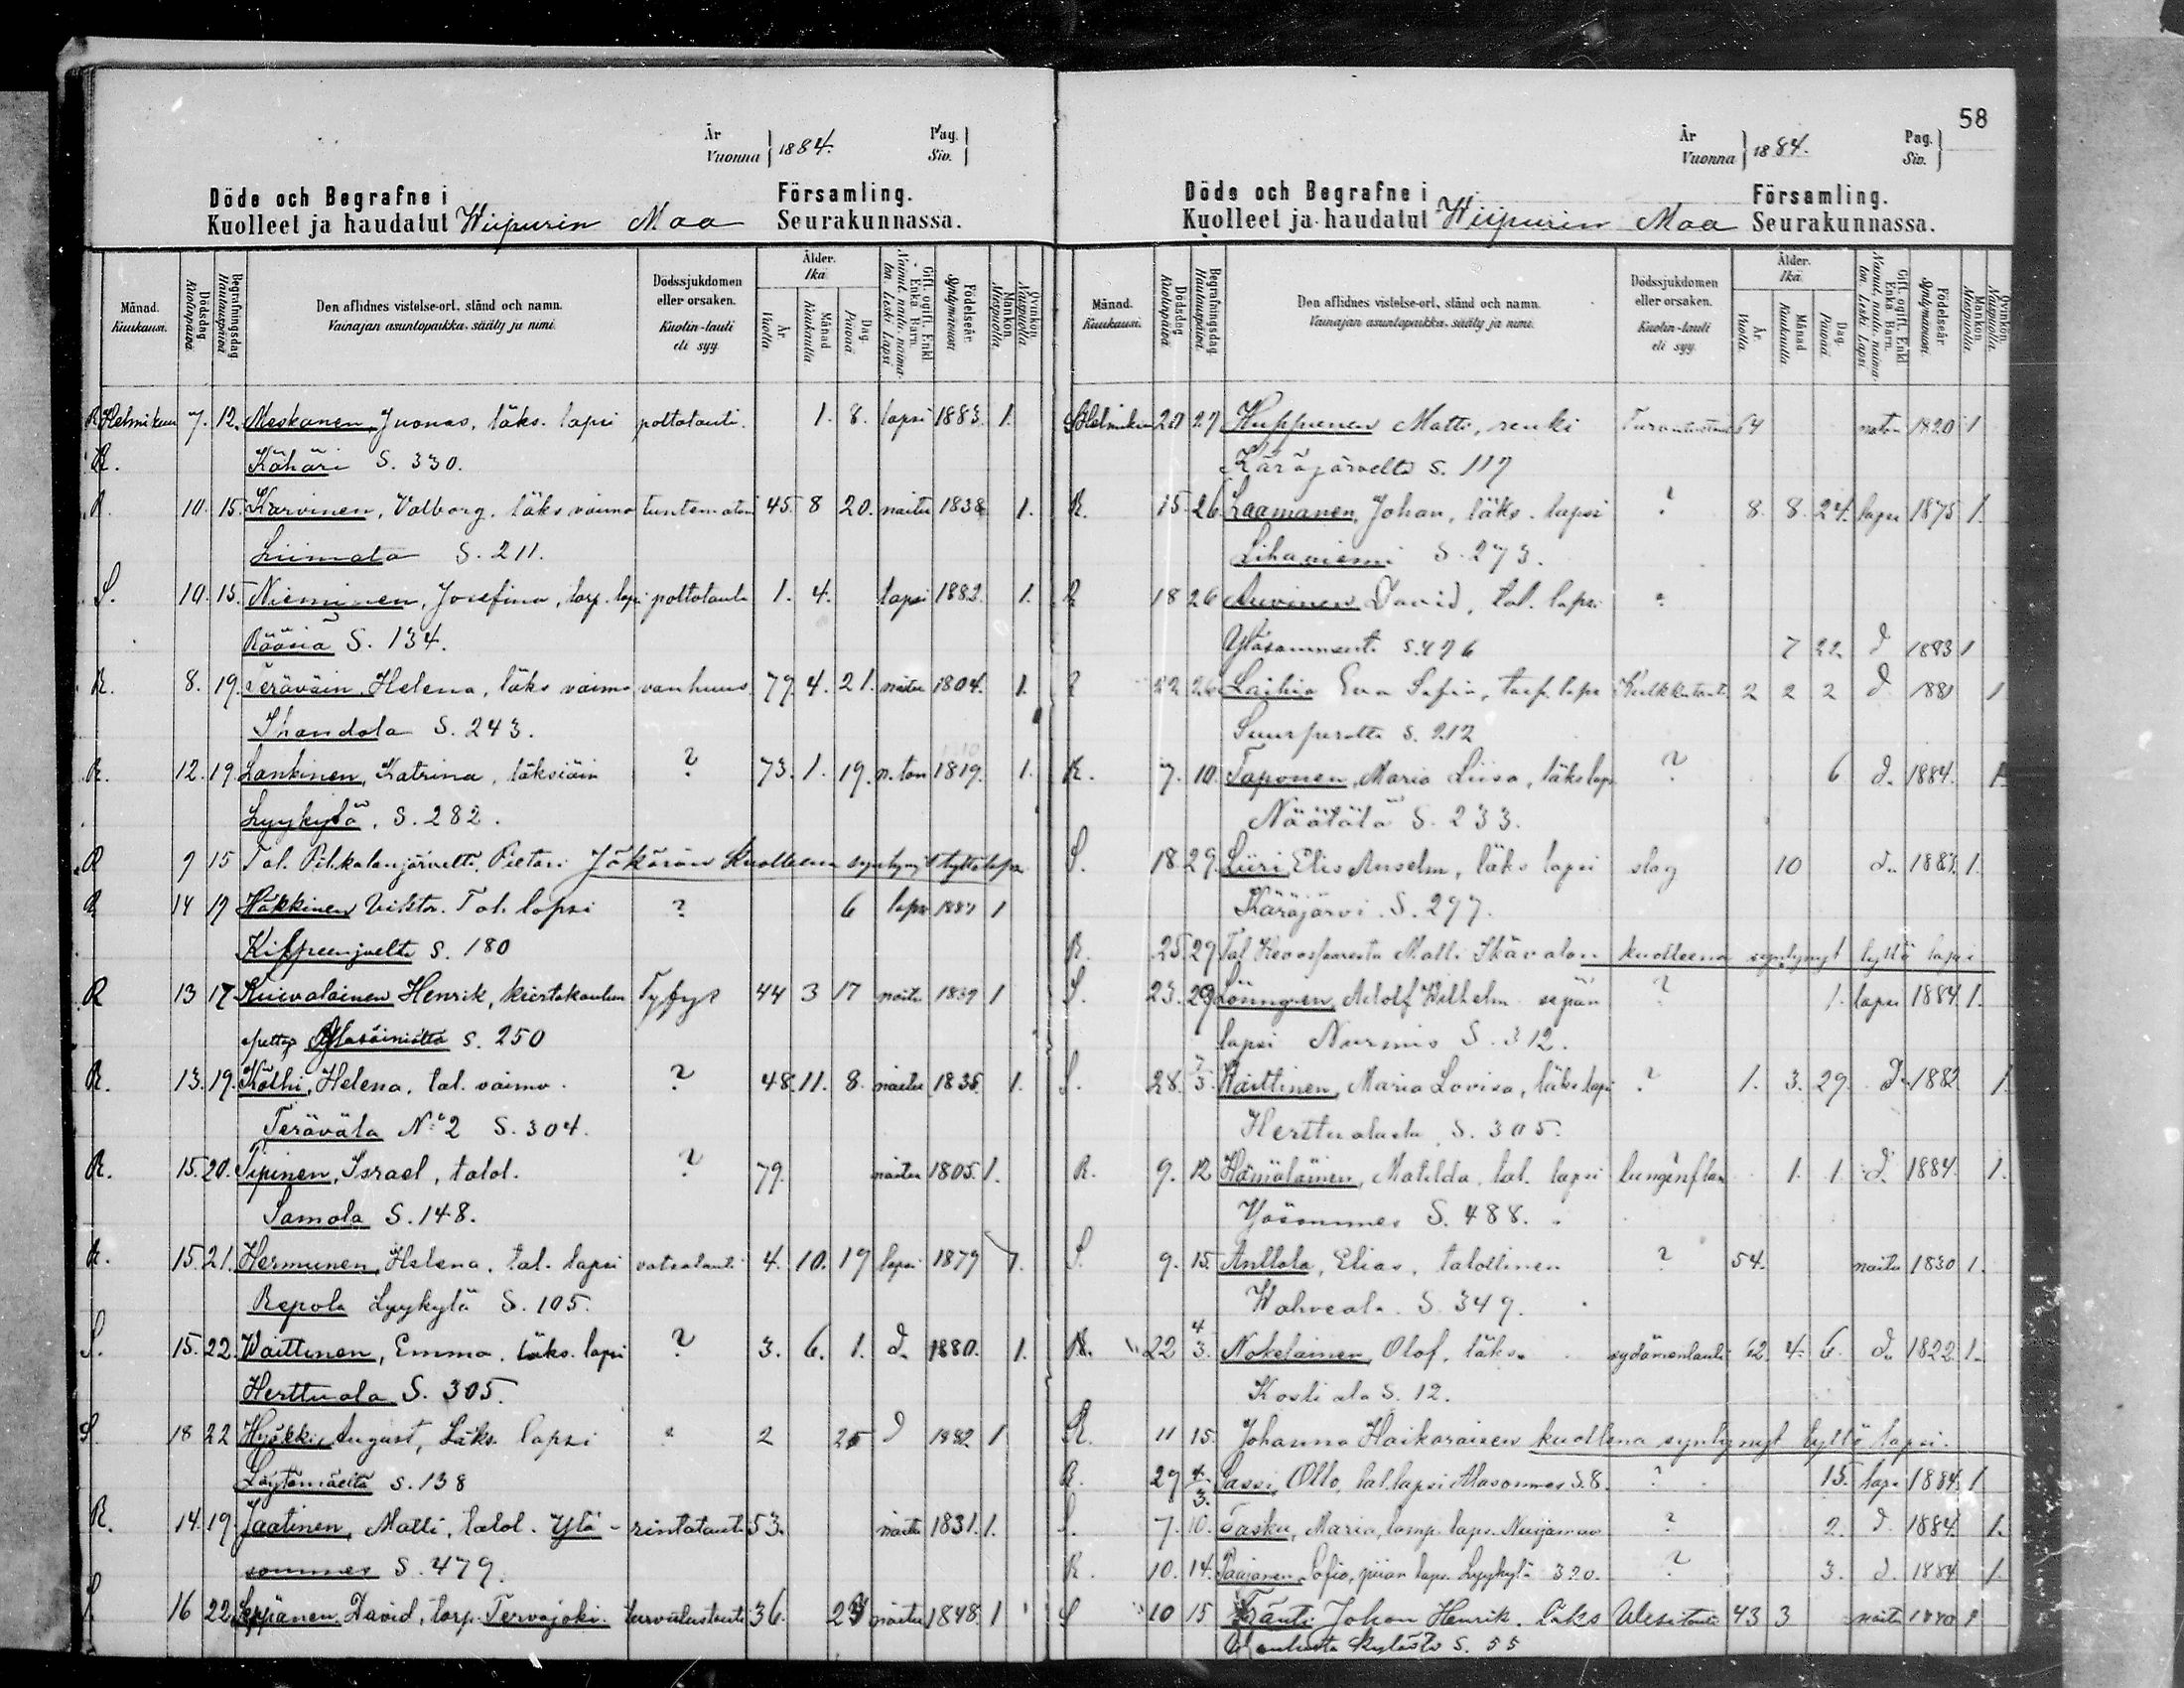 År
Vuonna } 1884.
Pag.
Siv.
Döde och Begrafne i Församling.
Kuolleet ja haudatut Wiipurin Maa Seurakunnassa.
Månad. Kuukausi.
Dödsdag Kuolinpäivä
Begrafningsdag Hautauspäivä
Den aflidnes vistelse-ort, stånd och namn.
Vainajan asuntopaikka, sääty ja nimi.
Dödssjukdomen eller orsaken.
Kuolin-tauti eli syy.
Ålder. Ikä.
År. Vuotta
Månad Kuukautta
Dag. Päivää
Gift, ogift, Enkl. Enka. Barn.
Nainut, naitu, naimaton. Leski. Lapsi
Födelseår. Syntymävuosi
Mankön. Miespuolia
Qvinkön. Naispuolia.
R Helmikuu 7. 12. Meskanen Juonas, läks. lapsi poltotauti. 1. 8. lapsi 1883. 1.
R. Kähäri S. 330.
R. 10. 15. Karvinen, Valborg, läks vaimo tuntematon 45. 8 20. naitu 1838. 1.
Liimata S. 211.
S. 10. 15. Nieminen, Josefina, torp. lapsi poltotauti 1. 4. lapsi 1882. 1.
Rääsiä S. 134.
R. 8. 19. Teräväin, Helena, läks vaimo vanhuus 79. 4. 21. naitu 1804. 1.
Ihandola S. 243.
R. 12. 19. Lankinen, Katrina, läksiäin ? 73. 1. 19. n. ton 1819. 1.
Lyykylä, S. 282.
R 9 15 Tal. Pilkalanjärveltä, Pietari Jäkärän kuolleena syntynyt tyttölapsi
R 14 17 Häkkinen Viktor. Tal. lapsi ? 6 lapsi 1884 1
Kilpeenjoelta S. 180
R 13 17 Kuivalainen Henrik, kiertokoulun Tyfys 44 3 17 naitu 1839 1
S. 250
R. 13. 19. Kölhi, Helena, tal. vaimo. ? 48. 11. 8. naitu 1835. 1.
Terävälä No 2 S. 304.
R. 15. 20. Tipinen, Israel, talol. ? 79. naitu 1805. 1.
Samola S. 148.
R. 15. 21. Hermunen, Helena, tal. lapsi vatsatauti 4. 10. 19 lapsi 1879 1.
Repola Lyykylä S. 105.
S. 15. 22. Waittinen, Emma. läks. lapsi ? 3. 6. 1. d. 1880. 1.
Herttuala S. 305.
S. 18 22 Hyökki August, Läks. lapsi ? 2 25 d 1882 1
Löytömäeltä S. 138
R. 14. 19. Jaatinen, Matti, talol. Ylä- rintatauti 53. naitu 1831. 1.
sommee S. 479.
S. 16 22 Seppänen David, torp. Tervajoki. 36. naitu 1848. 1
58
År
Vuonna } 1884.
Pag.
Siv.
Döde och Begrafne i Församling.
Kuolleet ja haudatut Wiipurin Maa Seurakunnassa.
Månad. Kuukausi.
Dödsdag Kuolinpäivä
Begrafningsdag. Hautauspäivä
Den aflidnes vistelse-ort, stånd och namn.
Vainajan asuntopaikka, sääty ja nimi.
Dödssjukdomen eller orsaken.
Kuolin-tauti eli syy.
Ålder. Ikä.
År. Vuotta
Månad Kuukautta
Dag. Päivää
Gift, ogift, Enkl. Enka. Barn.
Nainut, naitu, naimaton. Leski. Lapsi
Födelseår. Syntymävuosi.
Mankön. Miespuolia.
Qvinkön. Naispuolia.
S Helmikuu 20 27 Huppunen Matts, renki 64 naton 1820 1
Käräjärveltä S. 117
R. 15. 26. Laamanen, Johan, läks. lapsi ? 8. 8. 24. lapsi 1875 1.
Lihaniemi S. 273.
R 18 26 Auvinen David, tal. lapsi ?
S. 476 7 22 d 1883 1
R 22 26 Laihia Eva Sofia, torp. lapsi Kurkkutauti 2 2 2 d 1881 1
Suurperolta S. 212
R. 7. 10. Taponen, Maria Liisa, läks laps ? 6 d. 1884. 1.
Näätälä S. 233.
S. 18. 29. Liiri, Elis Anselm, läks lapsi slag 10 d. 1883. 1.
Käräjärvi. S. 297.
R. 25. 29 Tal Matti Ikävalon kuolleena syntynyt tyttö lapsi
S. 23. 29 Lönngren, Adolf Wilhelm sepän ? 1. lapsi 1884 1.
lapsi Nurmis S. 312.
S. 28. 7/3. Waittinen, Maria Lovisa, läks lapsi ? 1. 3. 29. d. 1882 1.
Herttualasta S. 305.
R. 9. 12 Hämäläinen, Matilda, tal. lapsi lunginflam 1. 1 d. 1884. 1.
Yläsommee S. 488.
S. 9. 15. Anttola, Elias, talollinen ? 54. naitu 1830 1.
Wahveala. S. 349.
R. 22 4/3. Nokelainen, Olof, läks. sydämentauti 62. 4. 6. d. 1822 1.
Kostiala S. 12.
R. 11 15. Johanna Haikaraisen kuolleena syntynyt tyttö lapsi.
R. 29 4/3. Sassi, Otto, tal. lapsi Alasommee S. 8. ? 15. laps 1884. 1
S. 7. 10. Tasku, Maria, lamp. laps. Nuijamaa ? 2. d. 1884. 1.
R. 10. 14. Paajanen, Sofia, piian laps. Lyykylä 320. ? 3. d. 1884 1.
S 10 15 Tränti Johan Henrik. läks Vesitauti 43 3 naitu 1840 1
kylästä S. 55